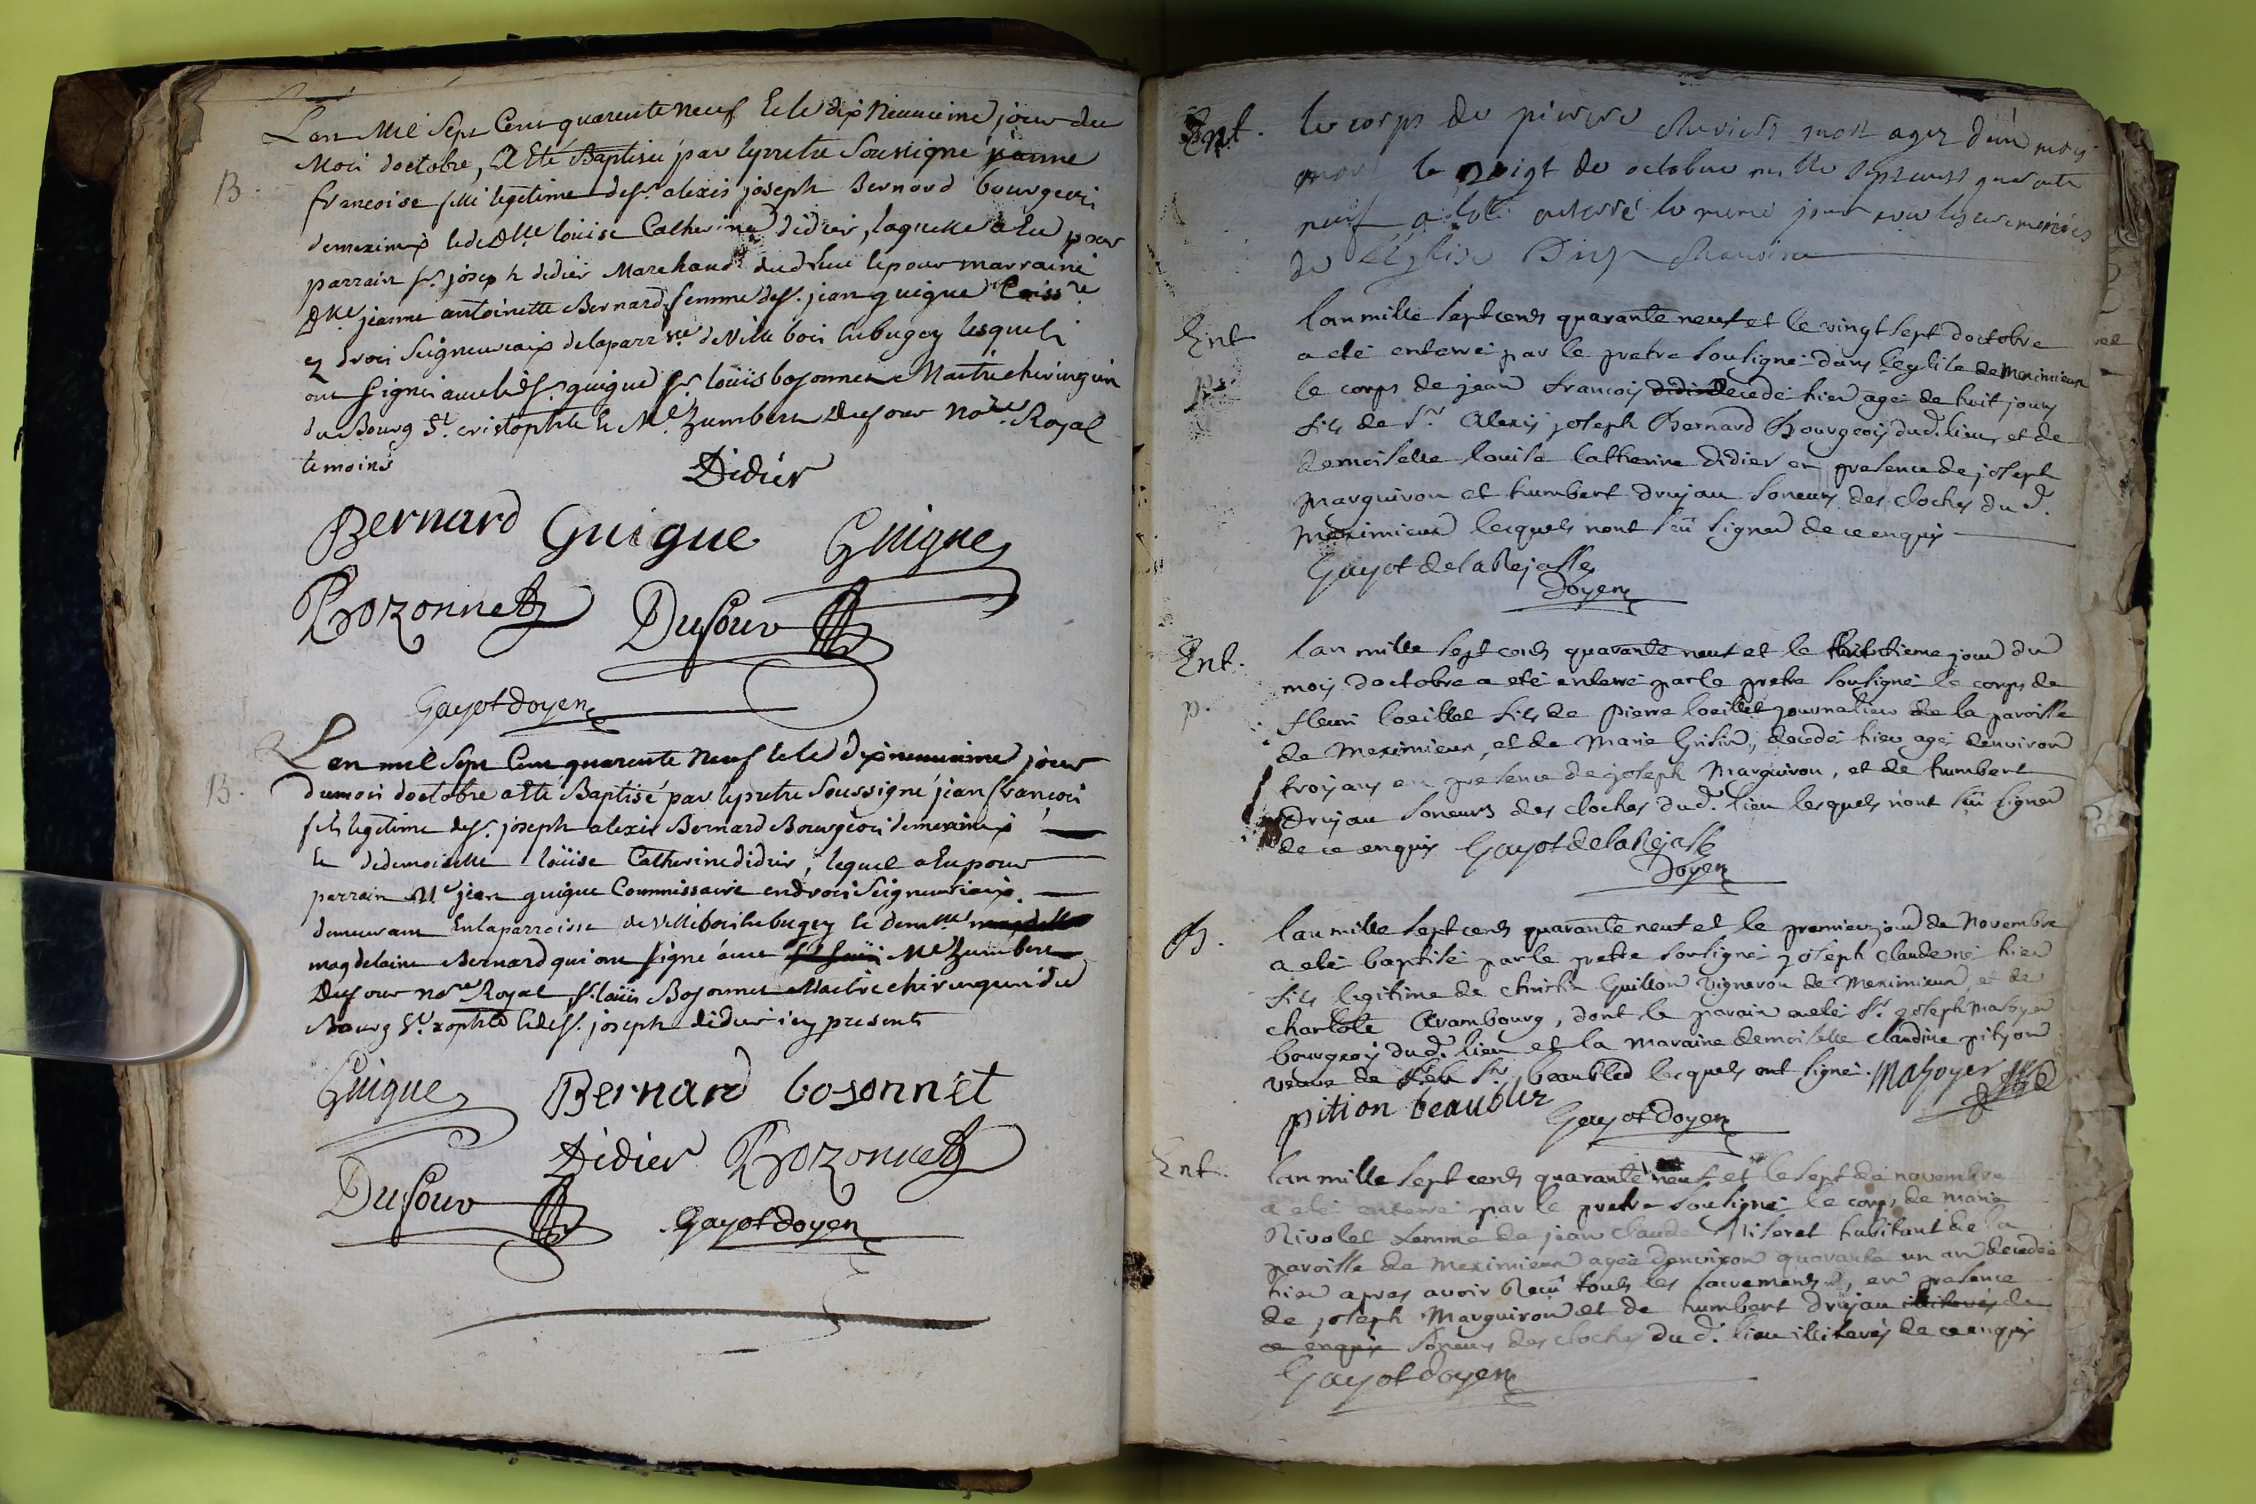 Lan Mil Sept Cent quarente neuf Et le dix Neuvieme jour du
Mois doctobre, A Eté Baptisée par le pretre Soussigné jeanne
B.
francoise fille legitime de sr. alexis joseph Bernard bourgeois
de meximieux et de Dlle louise Catherine didier, laquelle a Eu pour
parrain sr. joseph didier Marchand dud. lieu et pour marraine
Dlle jeanne antoinette Bernard femme de sr. jean guigue Comissre
en droits Seigneuriaux de la parrsse de Villebois en bugey lesquels
ont signés avec led. sr. guigue sr. loüis bosonnet Maitre chirurgien
du Bourg St. cristophle et Me. humbert dufour Nore. Royal
temoins
Didier
Bernard Guigue Guigue
Bozonnet Dufour
Gayot doyen
Lan mil Sept Cent quarente Neuf et le dix neuvieme jour
B.
du mois doctobre a Eté Baptisé par le pretre Soussigné jean francois
fils legitime de sr. joseph alexis Bernard Bourgeois de meximieux
et de demoiselle loüise Catherine didier, lequel a Eu pour
parrain Me jean guigue Commissaire en droits Seigneuriaux
demeurant En la parroisse de Villebois en bugey et demlle
magdelaine Bernard qui ont signé avec Me humbert
Dufour nore Royal sr. loüis Bosonnet Maitre chirurgien du
Bourg St. xophle et de sr. joseph didier icy presents
Guigue Bernard bosonnet
Didier Bozonnet
Dufour
Gayot doyen
Ent. le corps de pierre mort agez d'un mois
mort le veigt de octobre mille septcent quarante
neuf a eté enterré le meme jour avec les ceremonies
de l'Eglise
Ent lan mille sept cents quarante neuf et le vingt sept doctobre
a eté enterré par le pretre sousigné dans l'eglise de meximieux
le corps de jean francois decedé hier agé de huit jours
fils de sr. Alexis joseph Bernard Bourgeois dud. lieu, et de
demoiselle louise Catherine didier en presence de joseph
Marguiron et humbert drujau soneurs des cloches du d.
meximieux lesquels nont sçû signer de ce enquis
Gayot de la Rejasse
Doyen
Ent. lan mille sept cents quarante neuf et le jour du
mois doctobre a eté enterré par le pretre sousigné le corps de
p. fleuri loeillet fils de Pierre loeillet journalier de la paroisse
de meximieux, et de Marie Grisin, decedé hier agé denviron
trois ans en presence de joseph Marguiron, et de humbert
Drujau soneurs des cloches dud. lieu lesquels n'ont sçu signer
de ce enquis Gayot de la Rejasse
Doyen
B. lan mille sept cents quarante neuf et le premier jour de Novembre
a eté baptisé par le pretre sousigné joseph claude né hier
fils legitime de Guillon vigneron de Meximieux, et de
charlote Arambourg, dont le parain a eté sr. joseph Masoyer
bourgeois dud. lieu et la maraine demoiselle claudine pityon
veuve de feu sr. beaubled lesquels ont signé. Masoyer
pition beaublez
Gayot doyen
Ent. lan mille sept cents quarante neuf et le sept de novembre
a eté enterré par le pretre sousigné le corps de marie
Nivolet femme de jean claude habitant de la
paroisse de Meximieux agée denviron quarante un an decedée
hier apres avoir Reçu touts les sacrements, en presence
de joseph Marguiron et de humbert drujau illiterés de
ce enquis soneurs des cloches du d. lieu illiterés de ce enquis
Gayot doyen